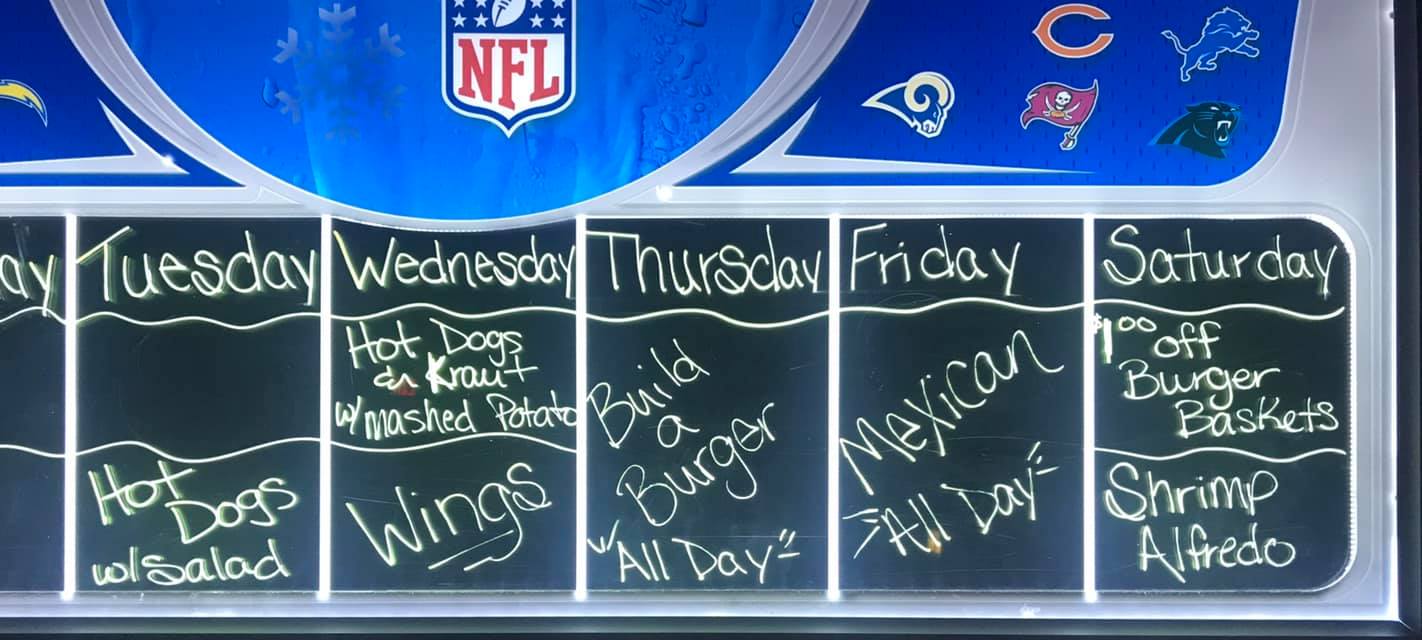 NFL
ay
Tuesday
Hot
Dogs
w/Salad
Wednesday
Hot Dogs
& Kraut
w/mashed Potato
Wings
Thursday
Build
a
Burger
"All Day"
Friday
Mexican
"All Day"
Saturday
$1.00 off
Burger
Baskets
Shrimp
Alfredo